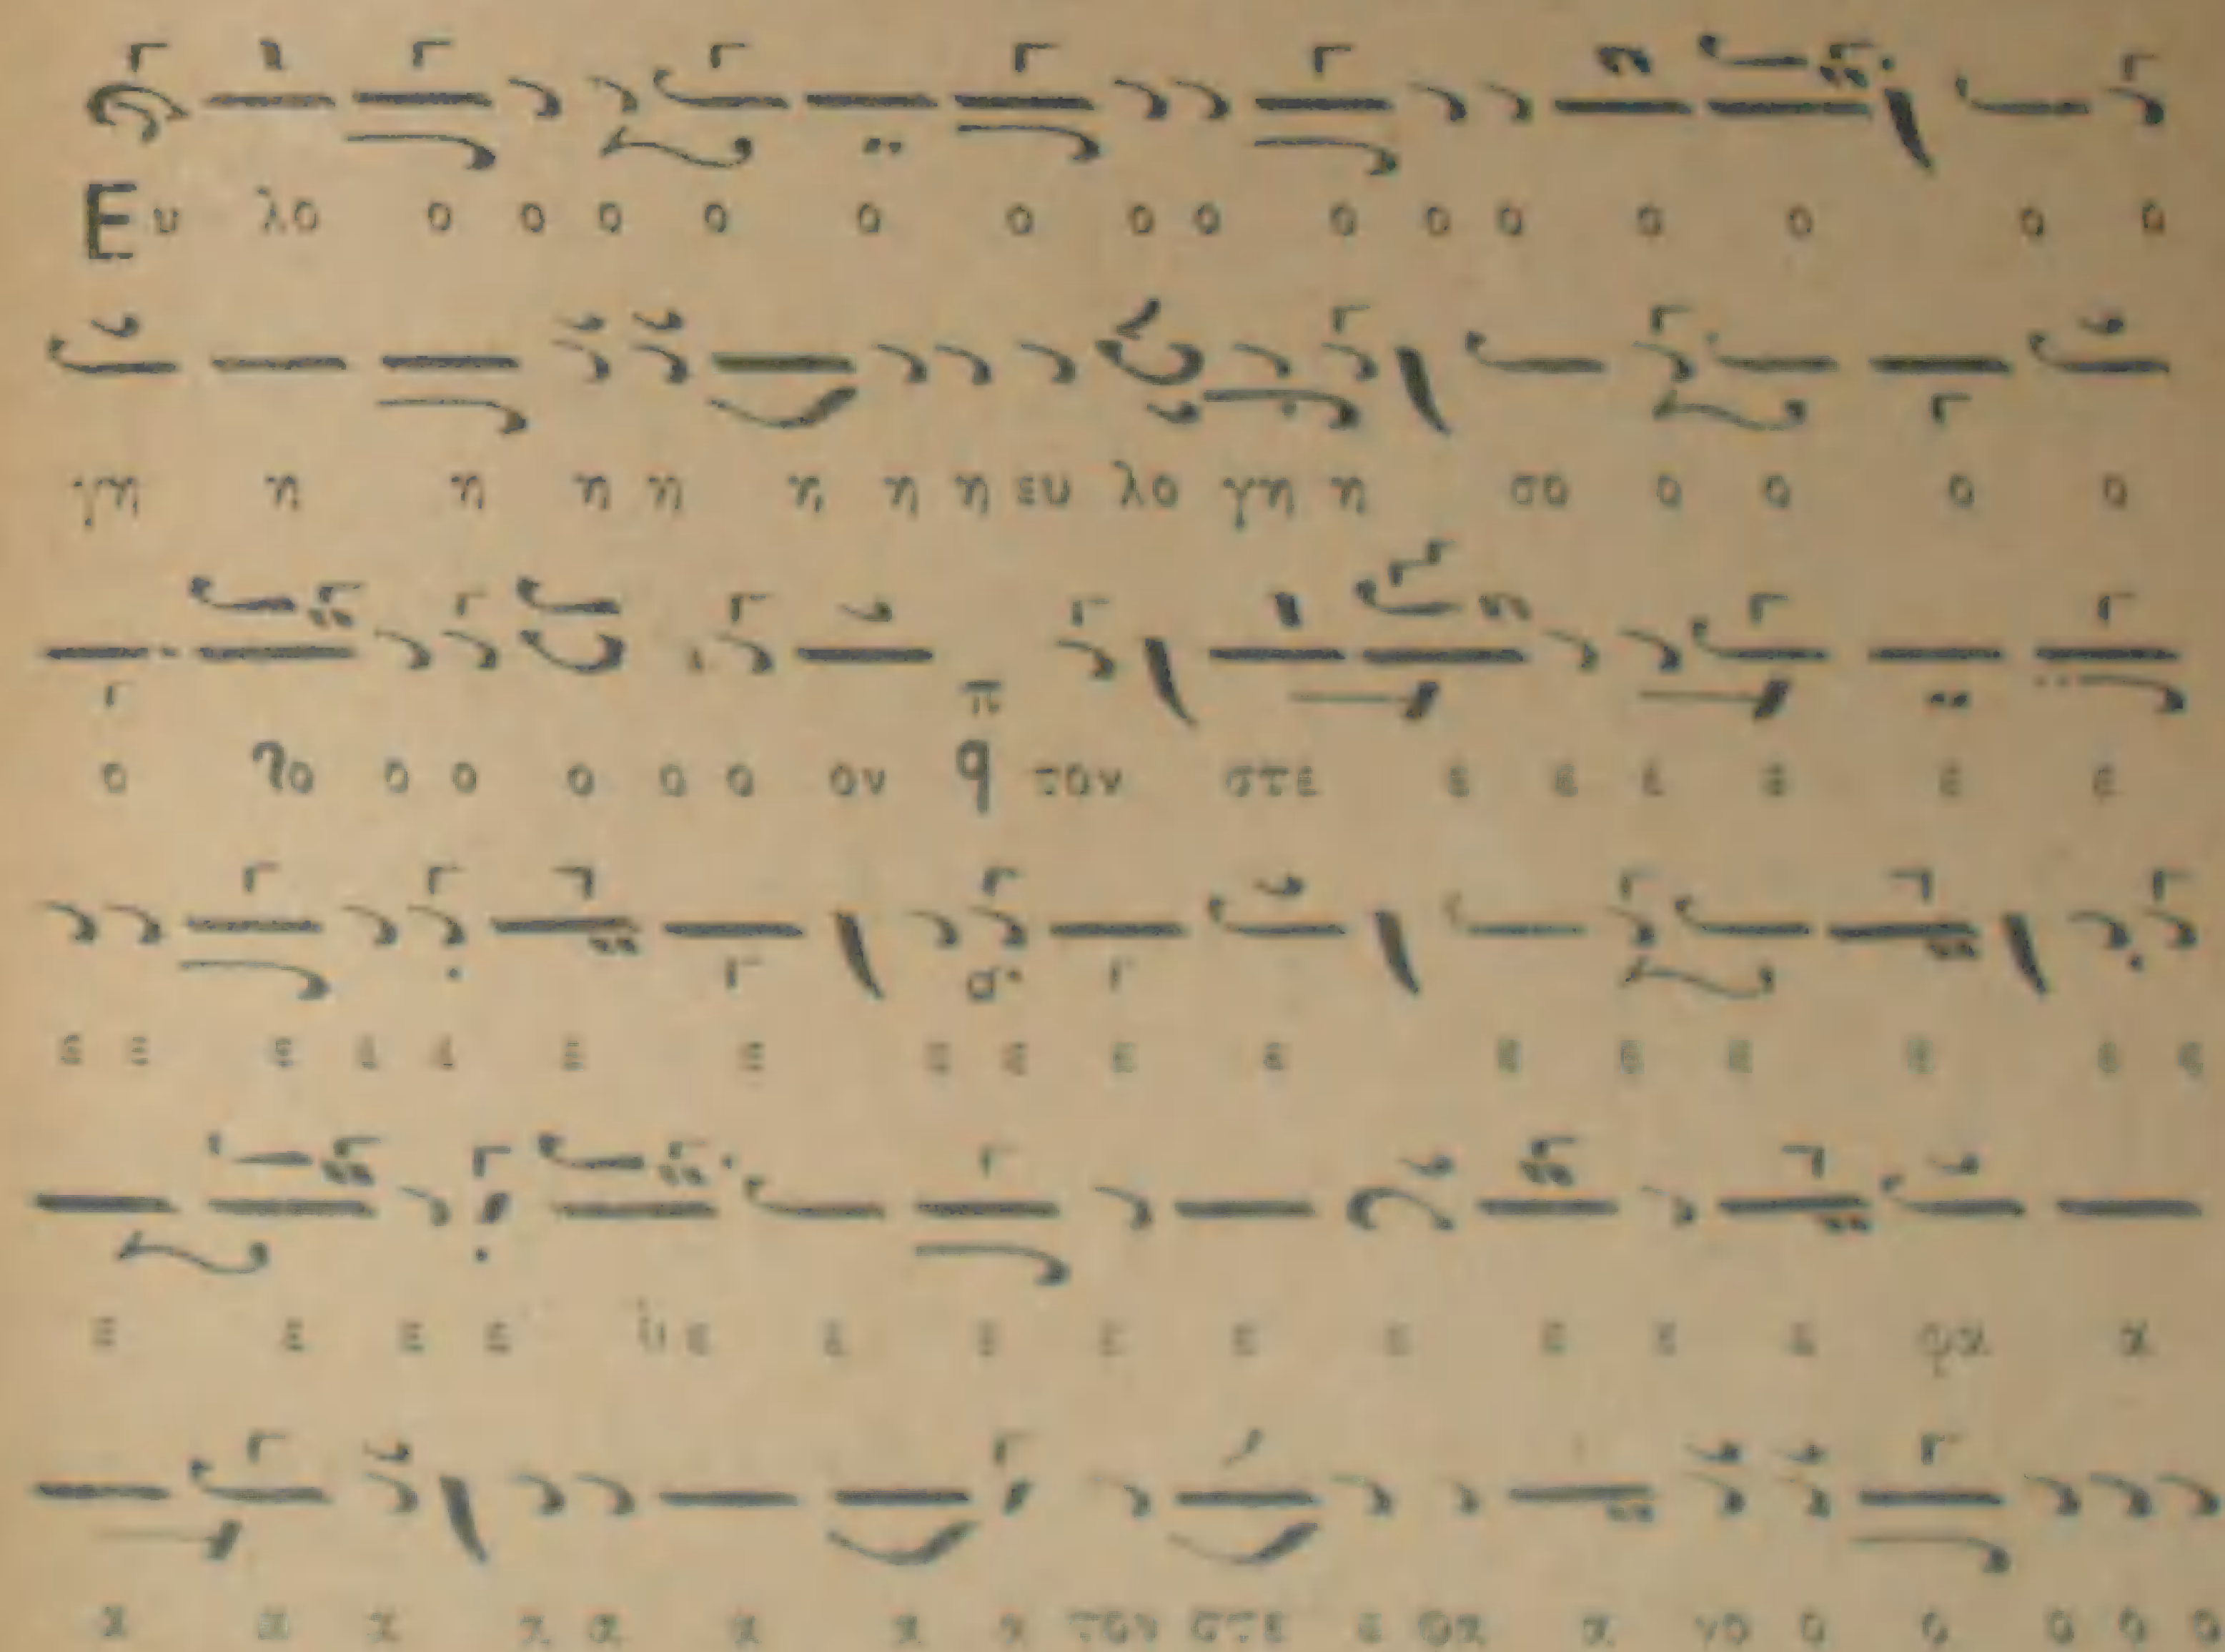 Ευ λο ο ο ο ο ο ο ο ο ο ο ο ο ο ο ο
γη η η η η η η η ευ λο γη η σο ο ο ο ο
ο ο ο ο ο ο ο ον π q τον στε ε ε ε ε ε ε
ε ε ε ε ε ε ε ε ε ε ε ε ε ε ε ε ε
ε ε ε ε ε ε ε ε ε ε ε ε ε α
α α α α α α α α τον στε ε α νο ο ο ο ο ο